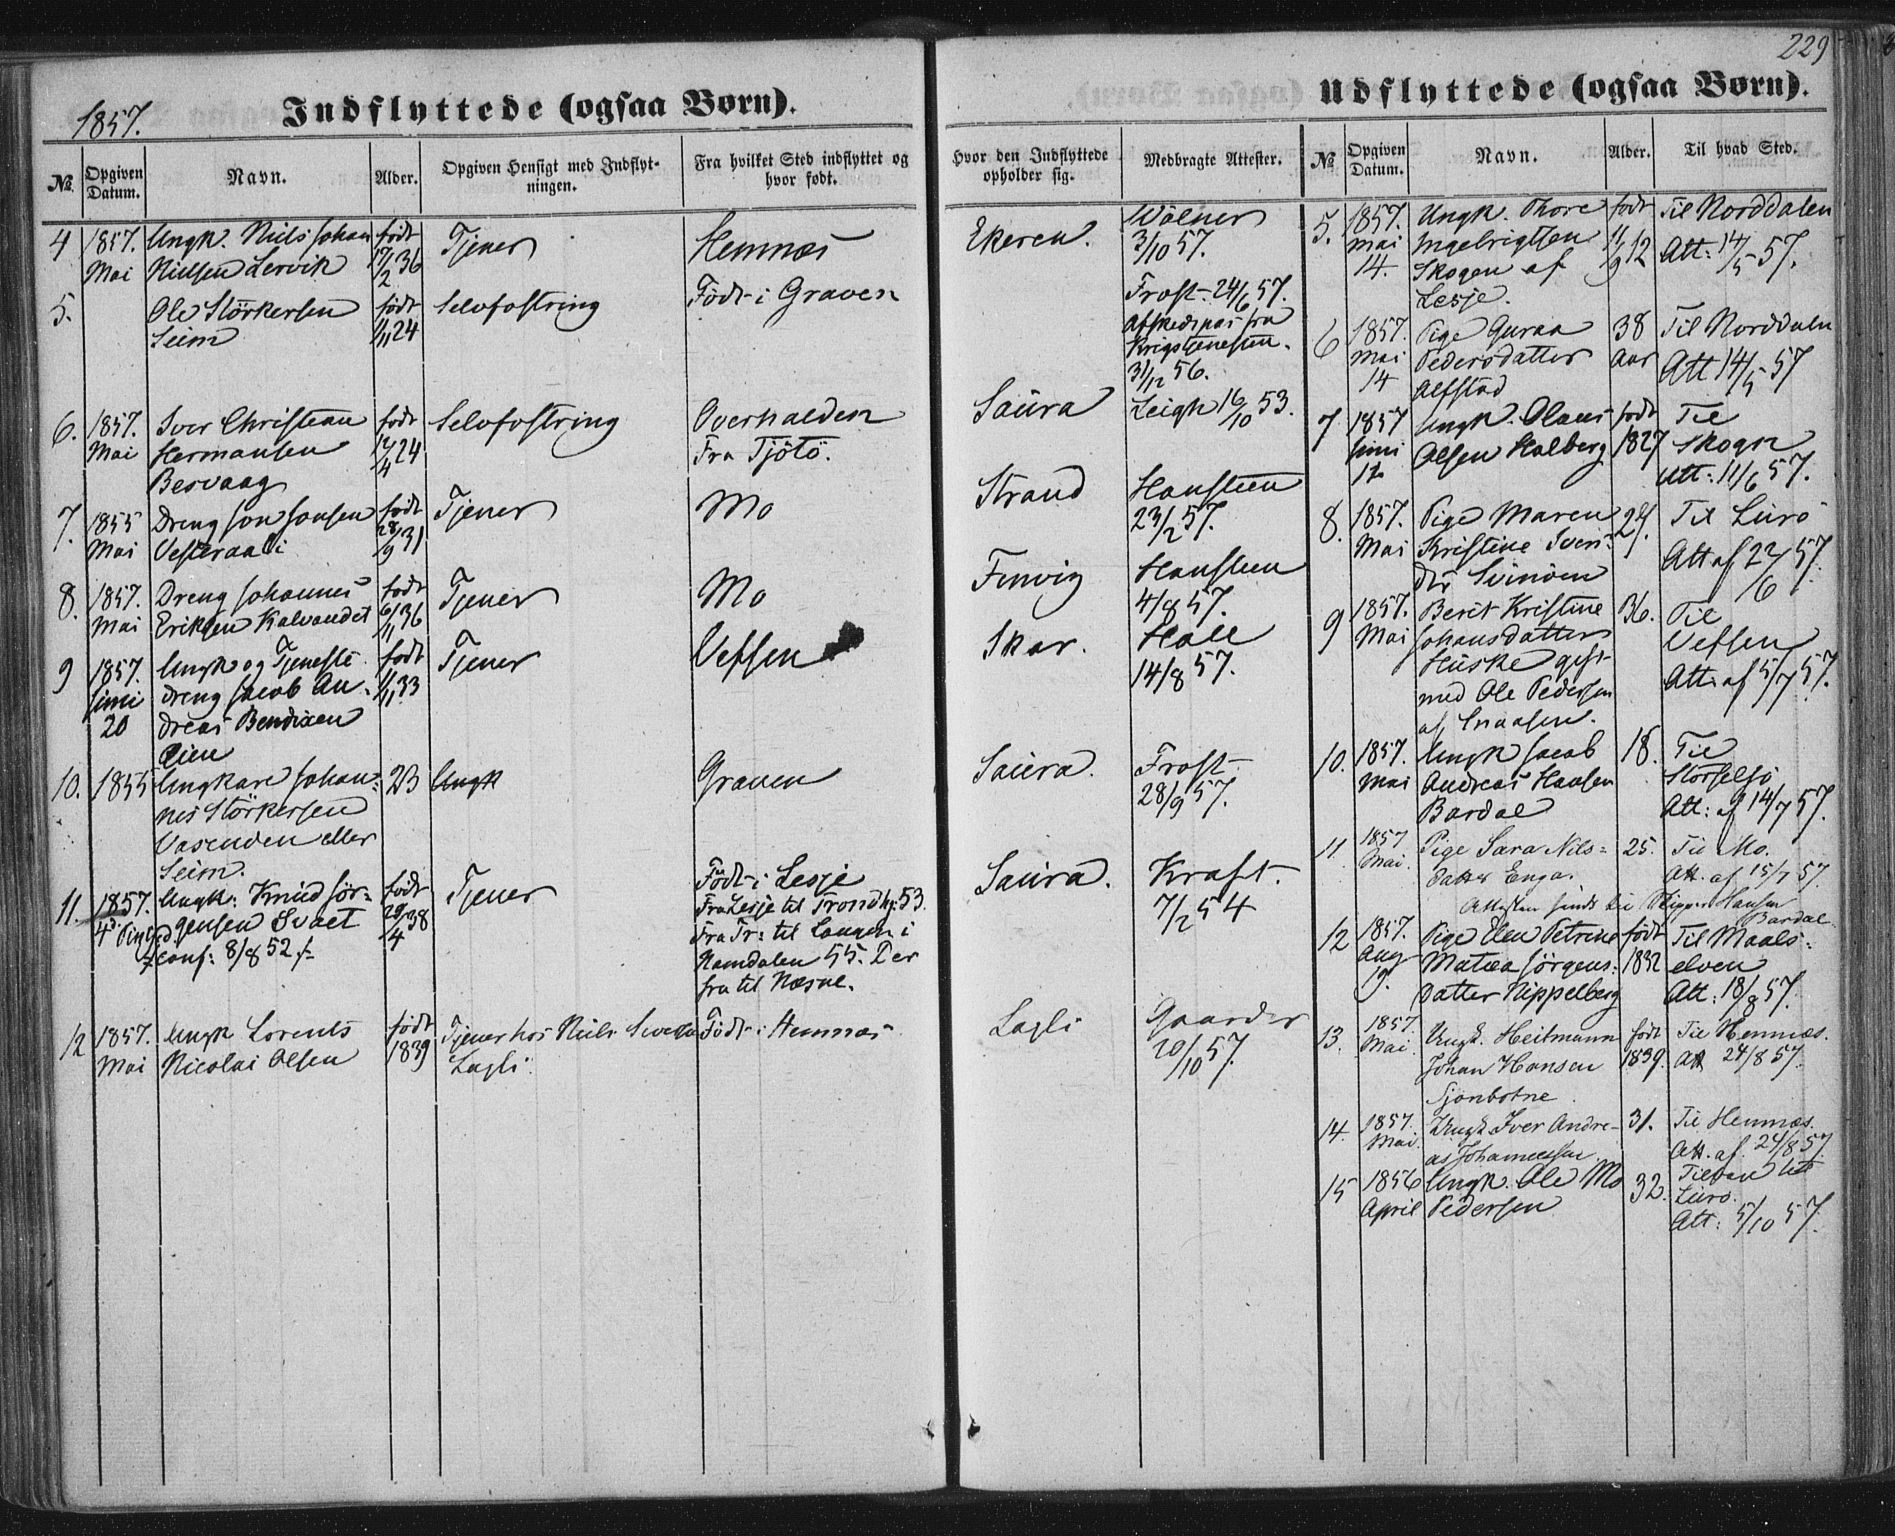 229
1857.
Indflyttede (ogsaa Børn).
Udflyttede (ogsaa Børn).
No.
Opgiven Datum.
Navn.
Alder.
Opgiven Hensigt med Indflyt-
ningen.
Fra hvilket Sted indflyttet og
hvor født.
Hvor den Indflyttede
opholder sig.
Medbragte Attester.
4 1857. Ungk. Niels Johan født Tjener Hemnæs Ekeren.
Mai Nielsen Lervik 17/2 36
3/10 57.
5. Ole Störkersen født Selvfostring Født i Graven Frost. 24/6 57.
Seim 1/11 24
Afskedspas fra
Krigstjenesten.
31/12 56.
6. 1857. Iver Christian født Selvfostring Overhalden Saura Leigh 16/10 53.
Mai Hermansen 12/4 24 Fra Tjötö.
Besvaag
7. 1855 Dreng Jon Jonsen født Tjener Mo Strand Hansteen
Mai 28/9 31 23/2 57.
8. 1857. Dreng Johannes født Tjener Mo Hansteen
Mai Eriksen Kalvandet 6/11 36 4/8 57.
9 1857. Ungk og Tjeneste født Tjener Vefsen Skar.
Juni dreng Jacob An- 1/11 33 14/8 57.
20 dreas Bendixen
10. 1855 Ungkarl Johan- 23 Ungk Graven Saura. Frost
nes Störkersen 28/9 57.
Vasenden eller
Seim.
11. 1857. Ungk: Knud Jör- født Tjener Født i Lesje Saura. Kraft.
gensen Svaet 29/4 38 Fra Lesje til Trondhj: 53. 7/2 54
conf: 8/8 52
Fra Tr: til
Namdalen 55. Der
fra til Næsne.
12 1857. Ungk Lorents født Tjener hos Niels Født i Hemnæs Lagli Gaarder
Mai Nicolai Olsen 1839 Lagli. 20/10 57.
No.
Opgiven Datum.
Navn.
Alder.
Til hvad Sted.
5. 1857. Ungk. Thore født Til Norddalen
Mai Ingebrigtsen 11/9 12 Att: 14/5 57.
14. Skogen af
Lesje.
6 1857. Pige Guraa 38 Til Norddalen
Mai Pedersdatter Aar Att 14/5 57
14 Alfstad
7 1857 Ungk. Olaus født Til
Juni Olsen Halberg 1827 Skogn
12 Att: 11/6 57.
8. 1857. Pige Maren 24. Til Lurö
Mai Kristine Ivers- Att af 22/6 57.
dtr Svinöen
9 1857. Berit Kristine 36. Til
Mai Johansdatter Vefsen
Huske gift Att: af 5/7 57.
med Ole Pedersen
af Snaasen.
10. 1857. Ungk Jacob 18. Til
Mai Andreas Hansen
Bardal Att: af 14/7 57.
11. 1857 Pige Sara Nils- 25. Til Mo.
Mai. datter Enga. Att. af 15/7 57.
Attesten sendt til Skipper Hansen
Bardal
12 1857. Pige Elen Petrine født Til Maals-
Aug Matea Jörgens- 1832 elven
19. datter Nippelberg Att: 18/8 57.
13. 1857. Ungk. Heitmann født Til Hemnæs.
Mai. Johan Hansen 1839. Att 24/8 57.
Sjonbotne.
14. 1857. Ungk Iver Andre- 31. Til Hemnæs.
Mai. as Johannessen. Att. af 24/8 57.
15 1856 Ungk. Ole Mo 32.
April Pedersen Lurö.
Att: 5/10 57.